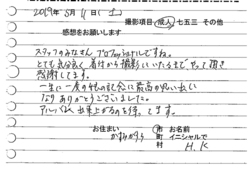 2019年 5月 11日 (土)
撮影項目 成人 七五三 その他
感想をお願いします
スタッフのみなさん プロフェッショナルですね。
とても気分良く 着付から撮影にいたるまで やって頂き
感謝してます。
一生に一度の記念に最高の思い出に
なり ありがとうございました。
アルバム 出来上がるのを待ってます。
お住まい 市 お名前
かすみがうら 町 イニシャルで
村 H.K